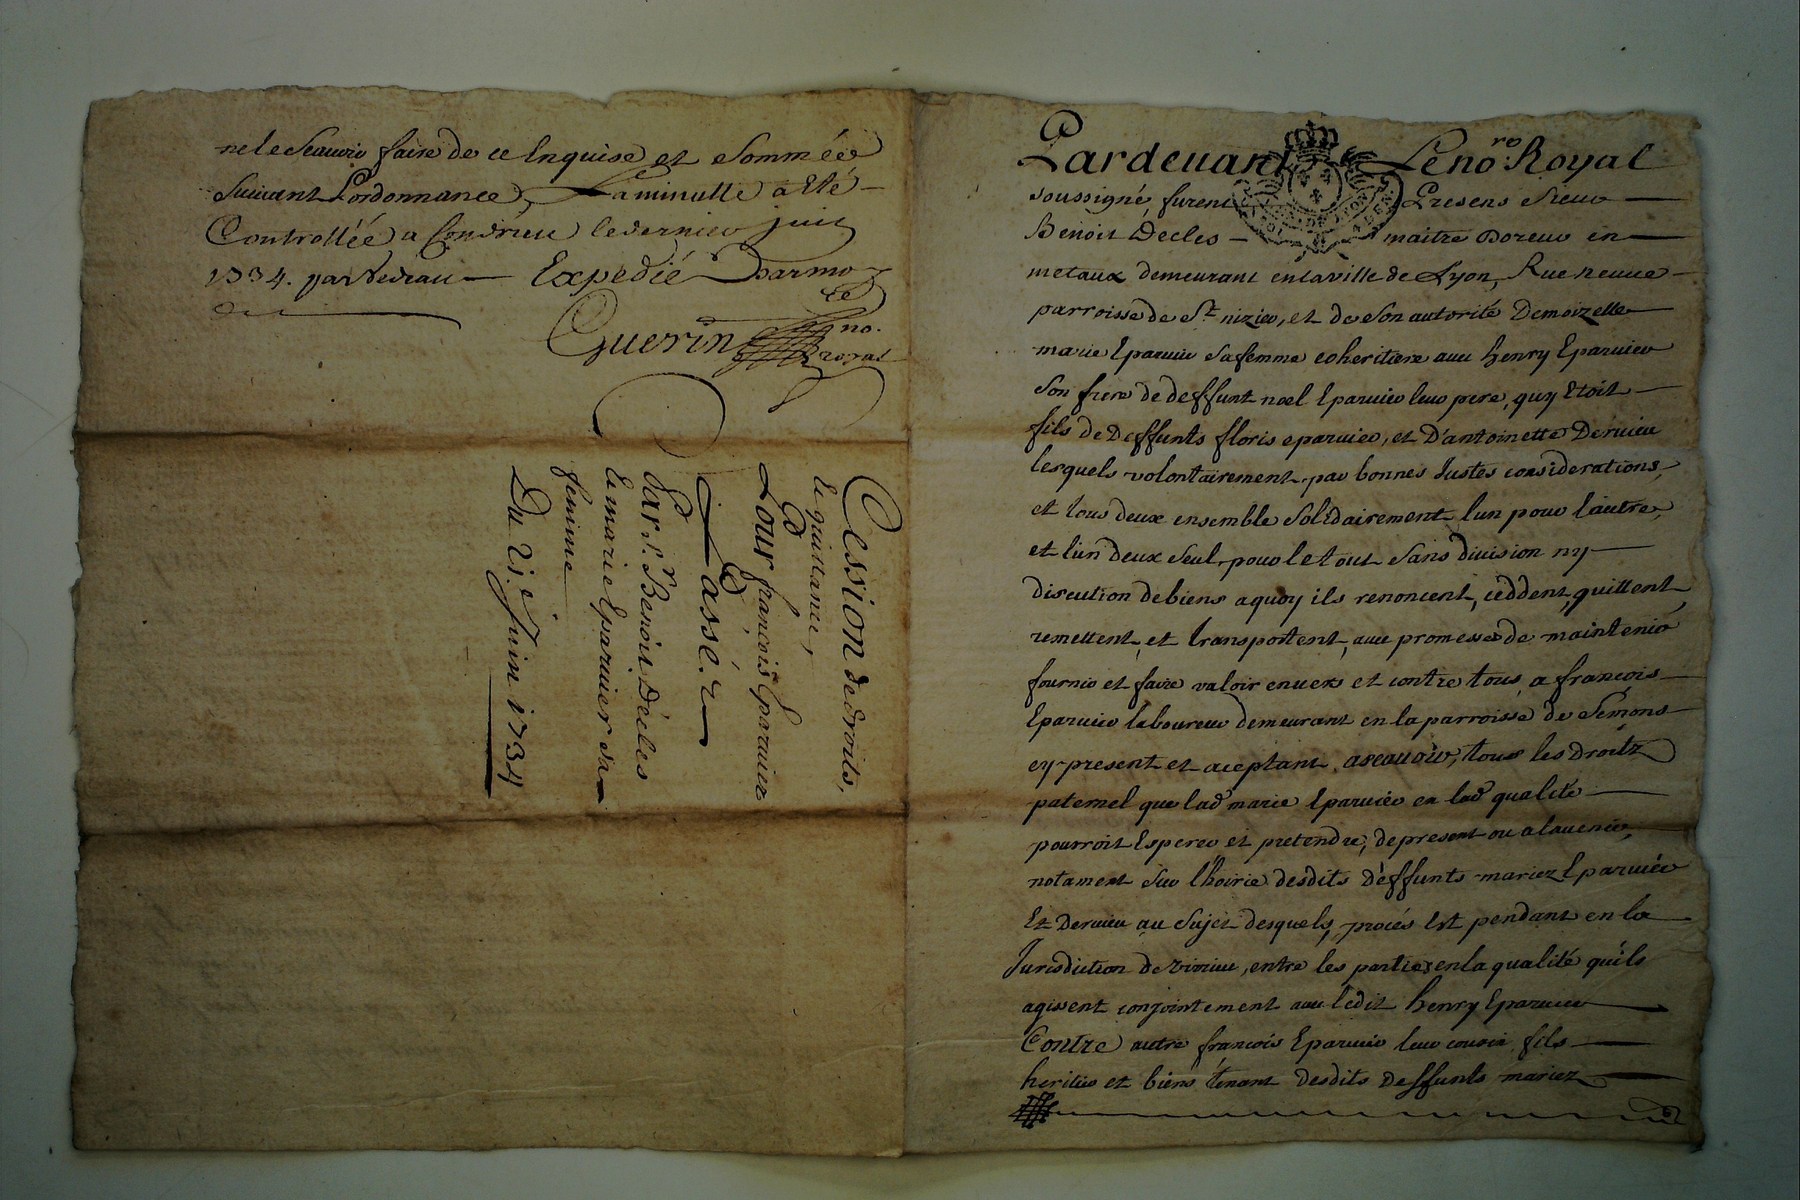 ne le scauoir faire de ce Enquise et sommée
suiuant Lordonnance, La minutte a Eté
Controllée a Condrieu le dernier juin
1734. par Dedrau Expedié
Guerin no. royal
Cession de droits,
le quittance,
Pour françois Eparuier
Passé.
Par sr. Benoit Décles
le marie Eparuier sa
femme
Du 21e Juin 1734
Pardeuant Le no.re Royal
soussigné, furent Presens sieur
Benoit Decles maitre Doreur en
metaux demeurant en la ville de Lyon, Rue neuue
parroisse de St. nizier, et de son autorité Demoizelle
marie Eparuier sa femme coheritiere auec henry Eparuier
son frere de deffunt noel Eparuier leur pere, quy Etoit
fils de Deffunts floris eparuier, et D'antoinette Deruieu
lesquels volontairement, par bonnes Justes considerations,
et tous deux ensemble solidairement lun pour l'autre,
et l'un deux seul, pour le tout sans diuision ny
discution de biens a quoy ils renoncent, ceddent, quittent,
remettent, et transportent, auec promesse de maintenir
fournir et faire valoir enuers et contre tous, a françois
Eparuier laboureur demeurant en la parroisse de Semons
cy present et aceptant, ascauoir, tous les droitz
paternel que lad. marie Eparuier en lad. qualité
pourroit Esperer et pretendre, de present ou a lauenir,
notament sur l'hoirie desdits déffunts mariez Eparuier
Et Deruieu au sujet desquels, procés Est pendant en la
Jurisdiction de virieu, entre les parties en la qualité qu'ils
agissent conjointement auec ledit henry Eparuier
Contre autre françois Eparuier leur cousin fils
heritier et biens tenant desdits deffunts mariez